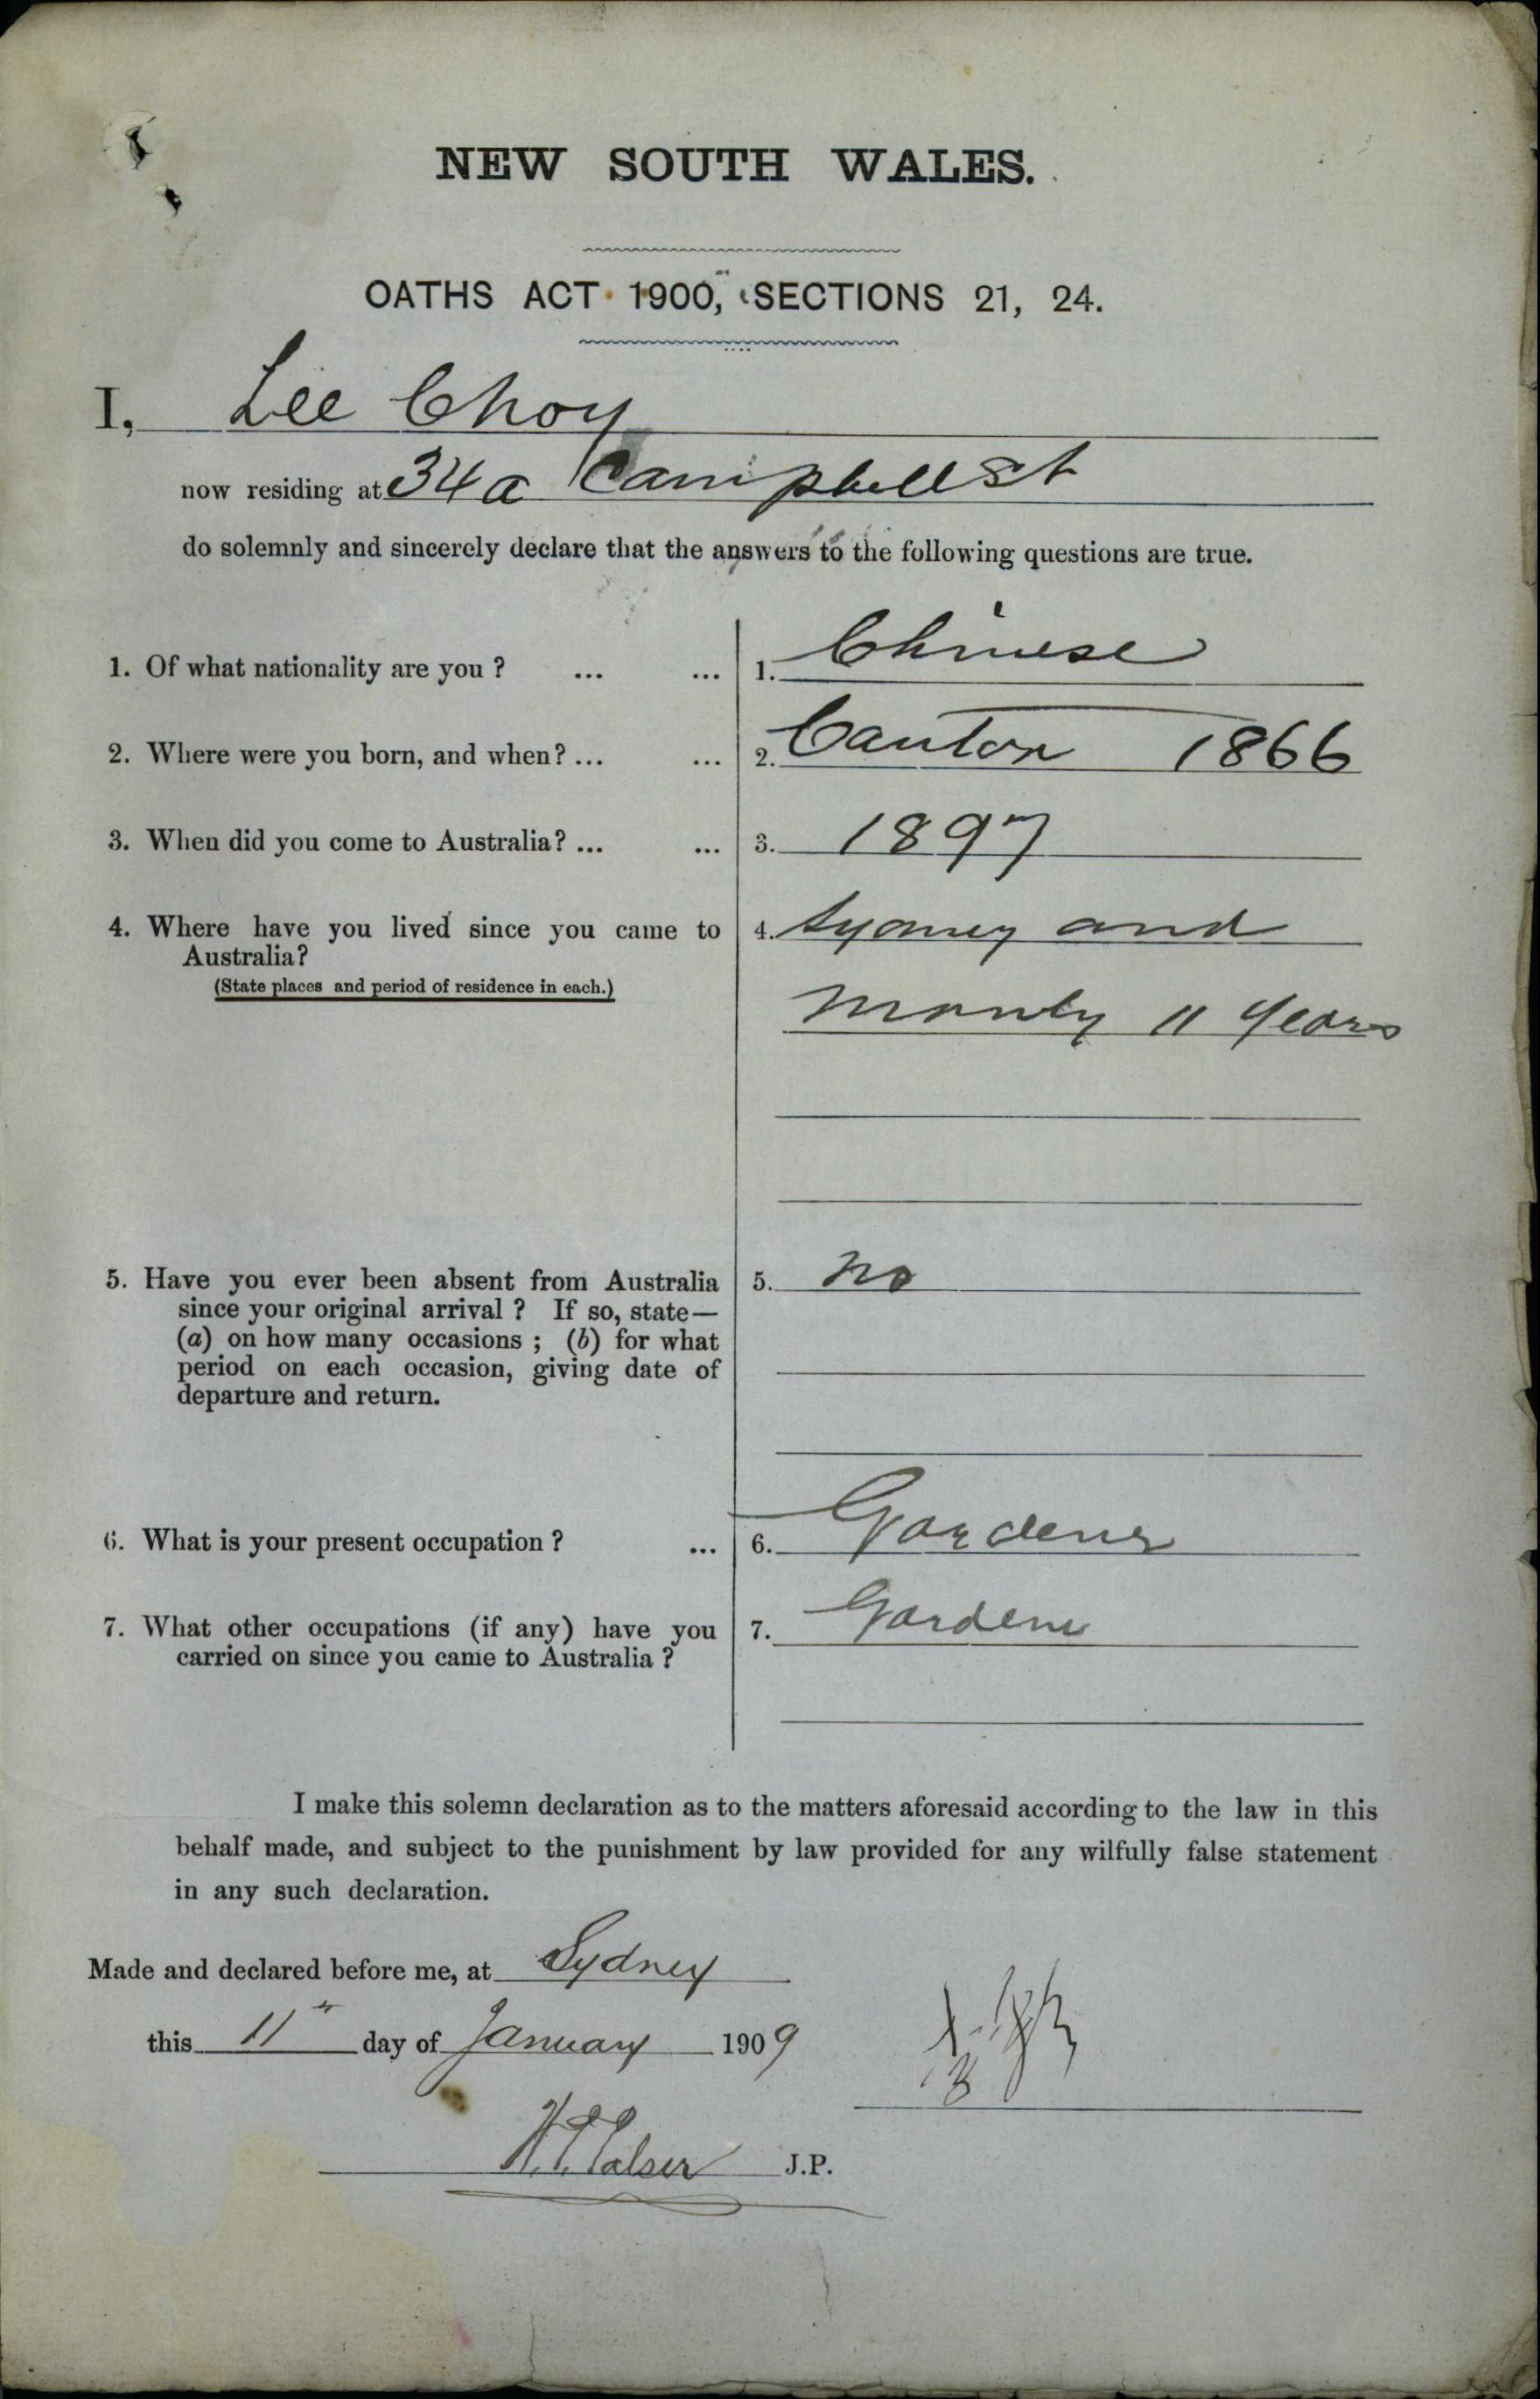 NEW SOUTH WALES.
OATHS ACT 1900, SECTIONS 21, 24.
I, Lee Choy
now residing at 34a Campbell St
do solemnly and sincerely declare that the answers to the following questions are true.
1. Of what nationality are you ? ... ... 1. Chinese
2. Where were you born, and when? ... ... 2. Canton 1866
3. When did you come to Australia? ... ... 3. 1897
4. Where have you lived since you came to 4. Sydney and
Australia?
(State places and period of residence in each.)
Manly 11 Years
5. Have you ever been absent from Australia 5. no
since your original arrival ? If so, state—
(a) on how many occasions ; (b) for what
period on each occasion, giving date of
departure and return.
6. What is your present occupation ? ... 6. Gardener
7. What other occupations (if any) have you 7. Gardener
carried on since you came to Australia ?
I make this solemn declaration as to the matters aforesaid according to the law in this
behalf made, and subject to the punishment by law provided for any wilfully false statement
in any such declaration.
Made and declared before me, at Sydney
this 11th day of January 1909
J.P.